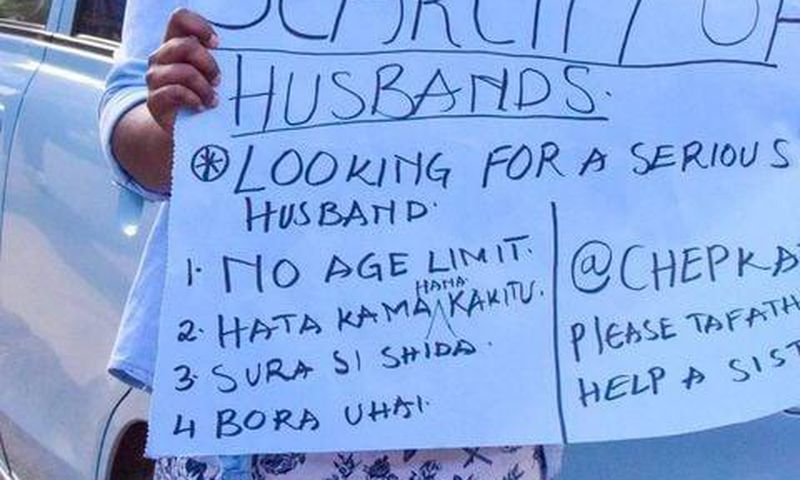 SCARCITY OF
HUSBANDS.
LOOKING FOR A SERIOUS
HUSBAND.
1. NO AGE LIMIT.
2. HATA KAMA HANA KAKITU.
3. SURA SI SHIDA.
4 BORA UHAI.
@CHEPKA
PLEASE TAFATH
HELP A SIST